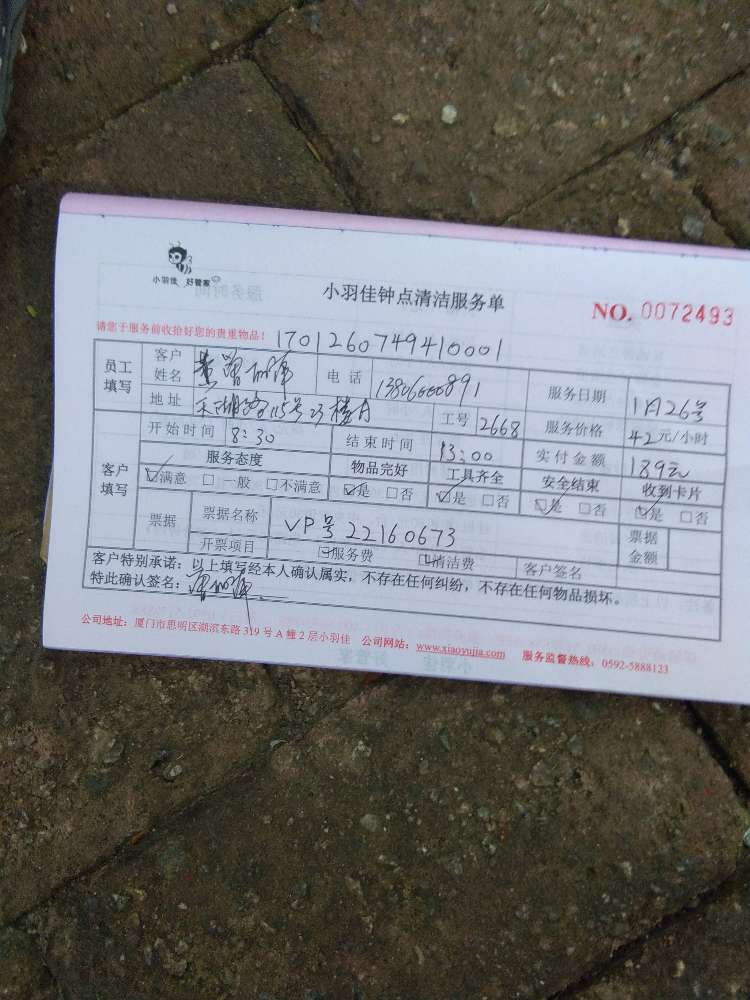 小羽佳 好管家
小羽佳钟点清洁服务单
NO. 0072493
请您于服务前收拾好您的贵重物品！
1701260749410001
员工填写 客户姓名 电话 服务日期 1月26号
地址 工号 2668 服务价格 42元/小时
客户填写 开始时间 8:30 结束时间 13:00 实付金额 189元
服务态度 物品完好 工具齐全 安全结束 收到卡片
☑满意 □一般 □不满意 ☑是 □否 ☑是 □否 ☑是 □否 ☑是 □否
票据 票据名称 VP号22160673 票据金额
开票项目 ☑服务费 ☑清洁费 客户签名
客户特别承诺：以上填写经本人确认属实，不存在任何纠纷，不存在任何物品损坏。
特此确认签名：
公司地址：厦门市思明区湖滨东路319号A幢2层小羽佳 公司网站：www.xiaoyujia.com 服务监督热线：0592-5888123